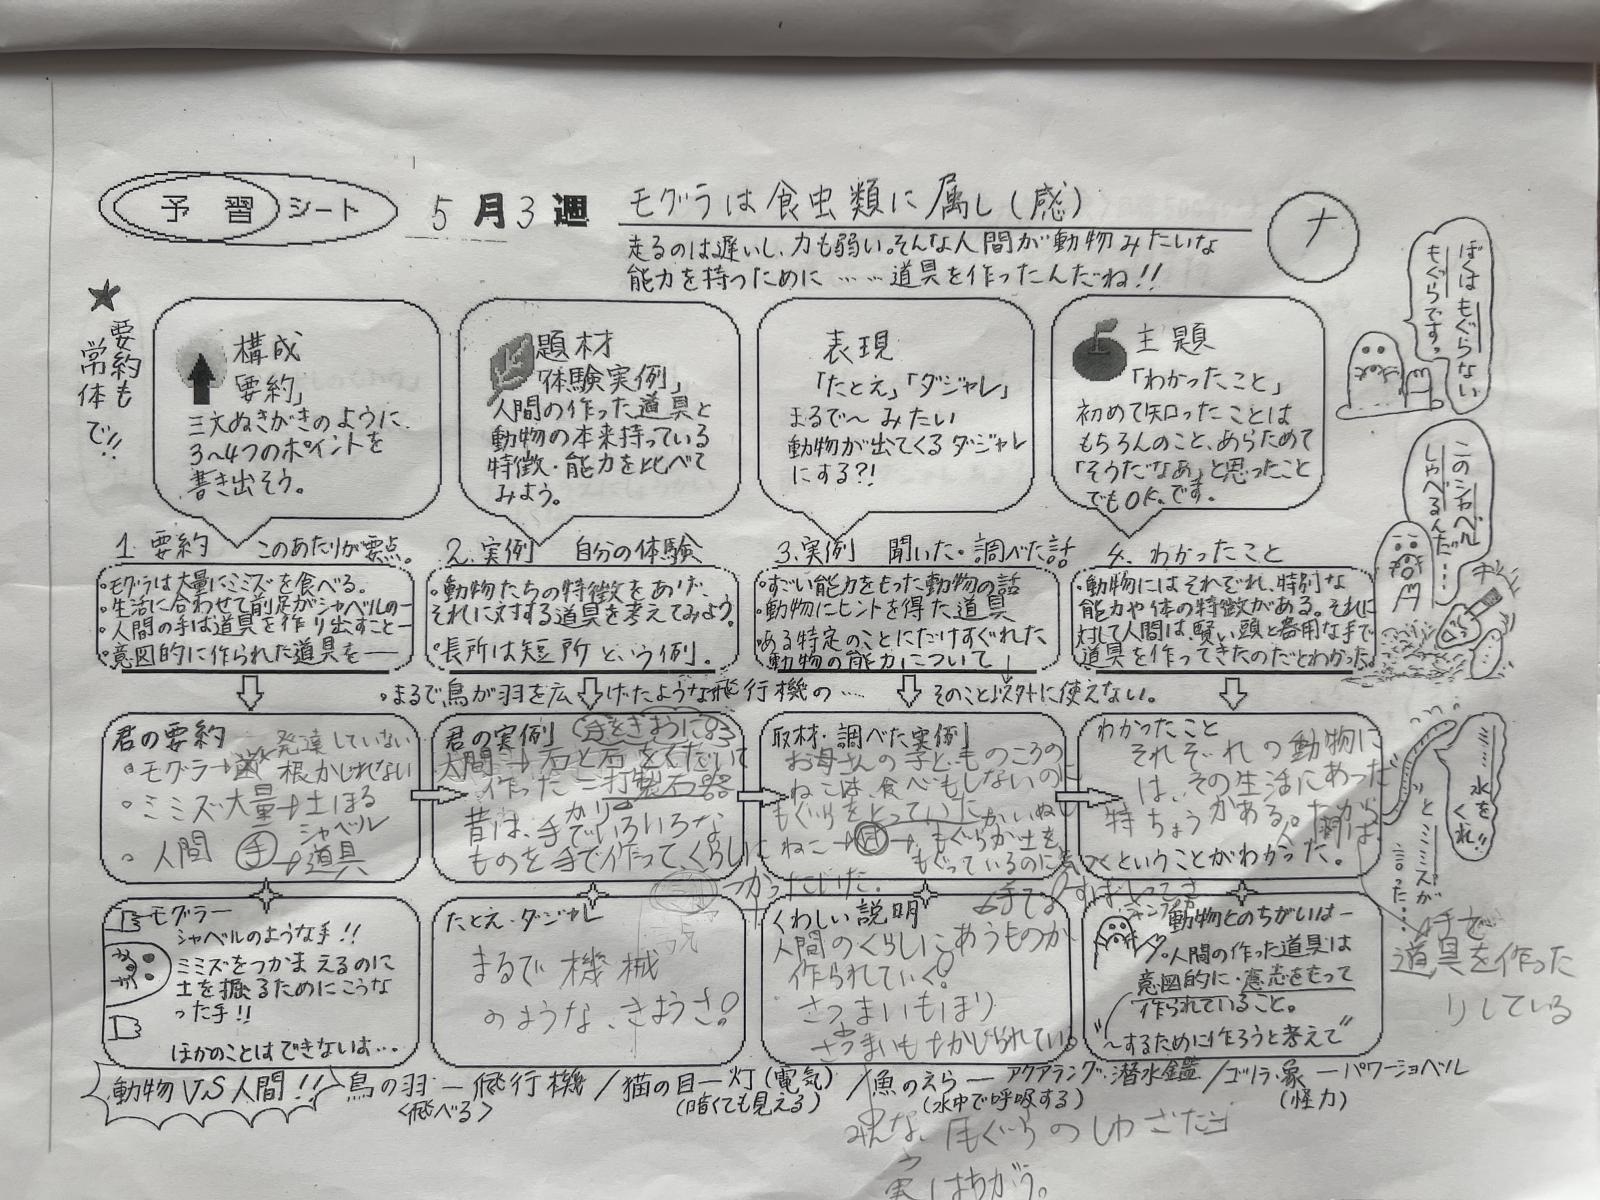 予習シート 5月3週 モグラは食虫類に属し(感) ナ
走るのは遅いし、力も弱い。そんな人間が動物みたいな
能力を持つために……道具を作ったんだね!!
★要約も
常体で!!
構成
「要約」
三文ぬきがきのように、
3~4つのポイントを
書き出そう。
題材
「体験実例」
人間の作った道具と
動物の本来持っている
特徴・能力を比べて
みよう。
表現
「たとえ」「ダジャレ」
まるで~みたい
動物が出てくるダジャレ
にする?!
主題
「わかったこと」
初めて知ったことは
もちろんのこと、あらためて
「そうだなあ」と思ったこと
でもOK。です。
ぼくはもぐらない
もぐらです。
このシャベル
しゃべるんだ……
1.要約 このあたりが要点。
・モグラは大量にミミズを食べる。
・生活に合わせて前足がシャベルの―
・人間の手は道具を作り出すこと―
・意図的に作られた道具を――
2.実例 自分の体験
・動物たちの特徴をあげ、
それに対する道具を考えてみよう。
・長所は短所という例。
3.実例 聞いた・調べた話
・すごい能力をもった動物の話
・動物にヒントを得た道具
・ある特定のことにだけすぐれた
動物の能力について
そのこと以外に使えない。
4.わかったこと
・動物にはそれぞれ、特別な
能力や体の特徴がある。それに
対して人間は、賢い頭と器用な手で
道具を作ってきたのだとわかった。
・まるで鳥が羽を広げたような飛行機の……
君の要約
・モグラ→歯 発達していない
根かじれない
・ミミズ大量→土ほる
・人間 手→シャベル
道具
君の実例
人間→石と石をくだいて
作った=打製石器
昔は、手でいろいろな
ものを手で作って、くらしに
つかっていた。
取材・調べた実例
お母さんの子どものころの
ねこは、食べもしないのに
もぐらをとっていた
かいぬし
ねこ→
もぐらが土を
もぐっているのに
わかったこと
それぞれの動物に
は、その生活にあった
特ちょうがある。
ということがわかった。
ミミズ 水をくれ!!
とミミズが
言った…
手で
道具を作った
りしている
モグラ―
シャベルのような手!!
ミミズをつかまえるのに
土を掘るためにこうな
った手!!
ほかのことはできないす…
たとえ・ダジャレ
まるで機械
のような、きようさ!
くわしい説明
人間のくらしにあうものが
作られていく。
さつまいもほり
さつまいもをかじられている
動物とのちがいは―
・人間の作った道具は
意図的に・意志をもって
作られていること。
"~するために作ろうと考えて"
動物VS人間!! 鳥の羽―飛行機/猫の目―灯(電気)/魚のえら―アクアラング・潜水鑑/ゴリラ・象―パワーショベル
<飛べる> (暗くても見える) (水中で呼吸する) (怪力)
みんな、もぐらのしわざだ
実はちがう。